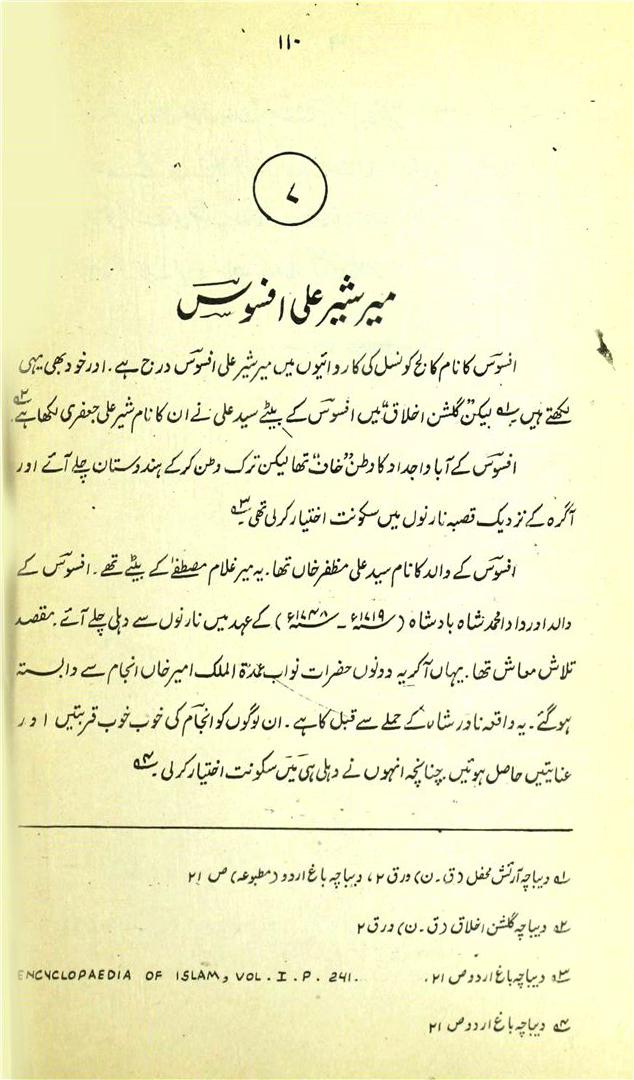 ۱۱۰
۷
میر شیر علی افسوس
افسوس کا نام کالج کونسل کی کاروائیوں میں میر شیر علی افسوس درج ہے۔ اور خود بھی یہی
لکھتے ہیں ؎۱ لیکن "گلشن اخلاق" میں افسوس کے بیٹے سید علی نے ان کا نام شیر علی جعفری لکھا ہے ؎۲
افسوس کے آبا و اجداد کا وطن "خاف" تھا لیکن ترک وطن کر کے ہندوستان چلے آئے اور
آگرہ کے نزدیک قصبہ نارنول میں سکونت اختیار کر لی تھی ؎۳
افسوس کے والد کا نام سید علی مظفر خاں تھا۔ یہ میر غلام مصطفےٰ کے بیٹے تھے۔ افسوس کے
والد اور دادا محمد شاہ بادشاہ (۱۷۱۹ء ۔ ۱۷۴۸ء) کے عہد میں نارنول سے دہلی چلے آئے۔ مقصد
تلاش معاش تھا۔ یہاں آ کر یہ دونوں حضرات نواب عمدۃ الملک امیر خاں انجام سے وابستہ
ہو گئے۔ یہ واقعہ نادر شاہ کے حملے سے قبل کا ہے۔ ان لوگوں کو انجام کی خوب خوب قربتیں اور
عنایتیں حاصل ہوئیں چنانچہ انہوں نے دہلی ہی میں سکونت اختیار کر لی ؎۴
؎۱ دیباچہ آرائش محفل (ق۔ن) ورق ۲، دیباچہ باغ اردو (مطبوعہ) ص ۲۱
؎۲ دیباچہ گلشن اخلاق (ق۔ن) ورق ۲
؎۳ دیباچہ باغ اردو ص ۲۱، ENCYCLOPAEDIA OF ISLAM, VOL. I. P. 241.
؎۴ دیباچہ باغ اردو ص ۲۱